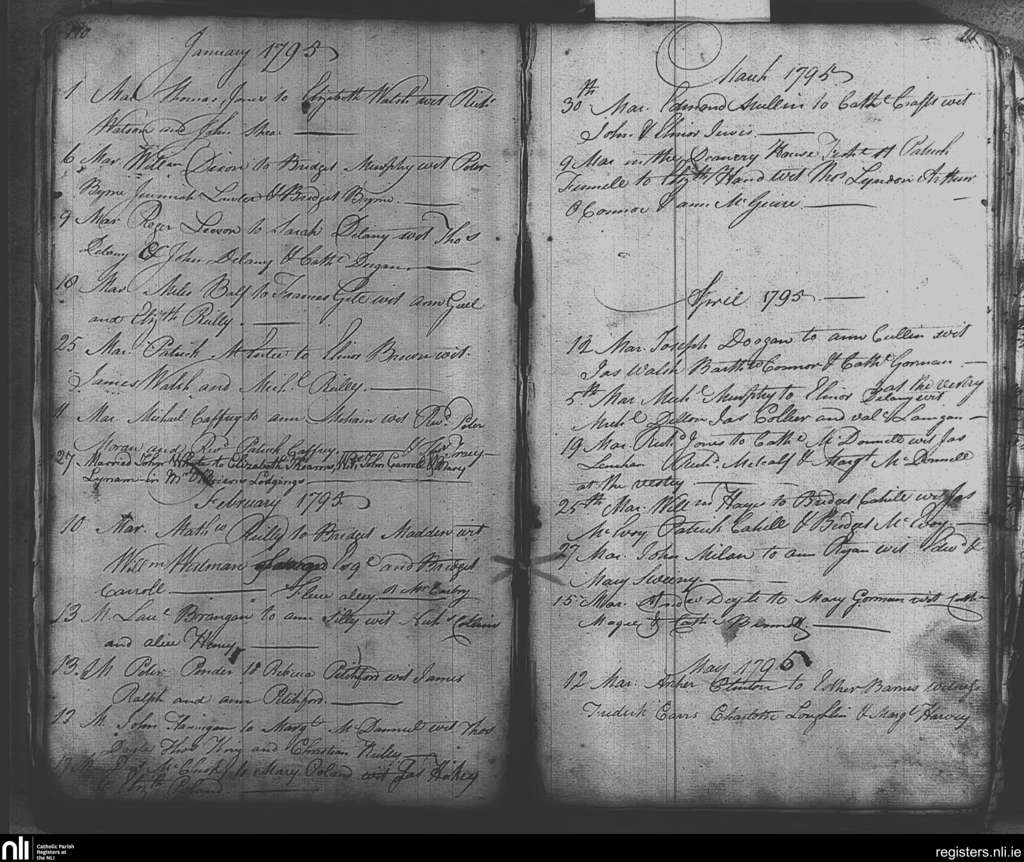 110
January 1795
1 Mar Thomas Jones to Elizabeth Walsh wit Richd
Watson and John Shea
6 Mar Willm Dixon to Bridget Murphy wit Peter
Byrne Lawler & Bridget Byrne
9 Mar Roger to Sarah Delany wit Thos
Delany & John Delany & Cathe Deegan
18 Mar Miles Balf to Frances wit ann
and Elizth Reilly
25 Mar. Patrick to Elinor Brown wit
James Walsh and Michl Reiley
11 Mar Michael Caffrey to ann wit Revd Peter
Moran and Revd Patrick Caffrey
27 Married John White to Elizabeth Wit John Carroll & Mary
Lynam in Mr Lodgings
February 1795
10 Mar. Mathw Reilly to Bridget Madden wit
Willm Esqe and Bridget
Carroll. aley at Mr
13 M. Laue Branagan to ann Silly wit Richd Collins
and alice Henry
13. M Peter Pender to Rebecca Pitchford wit James
Ralph and ann Pitchford
13 M. John to Margt Mc Daniel wit Thos
Doyle Thos and Christian Reiley
17 to Mary Poland wit Jas Hickey
& Elizth Poland
March 1795
30th Mar. Edmond Mullin to Cathe Crafts wit
John & Elinor
9 Mar in the House Patrick
to Elizth Hand wit Thos Lyndon Arthur
O Connor & ann Mc Guire
April 1795
12 Mar. Joseph Doogan to ann Cullin wit
Jas Walsh Barthw Connor & Cathe Gorman
5th Mar Michl Murphy to Elinor Delany wit at the vestry
Michl Dillon Jas Collier and Val Langan
19 Mar Richd Jones to Cathe Mc Donnell wit Jas
Lenehan Richd Metcalf & Margt Mc Donnell
at the vestry
25th Mar. Willm Hayes to Bridget Cahill wit Jas
Mc Evoy Patrick Cahill & Bridget Mc Evoy
27 Mar. John Milan to ann Ryan wit Edwd &
Mary Sweeny
15 Mar. Andw Doyle to Mary Gorman wit Cathe
Magee & Cathe Bennett
May 1795
12 Mar. Archer Clinton to Esther Barnes witness
Fredrick Carrs Charlotte Loughlin & Margt Harvey
nli
Catholic Parish
Registers at
the NLI
registers.nli.ie